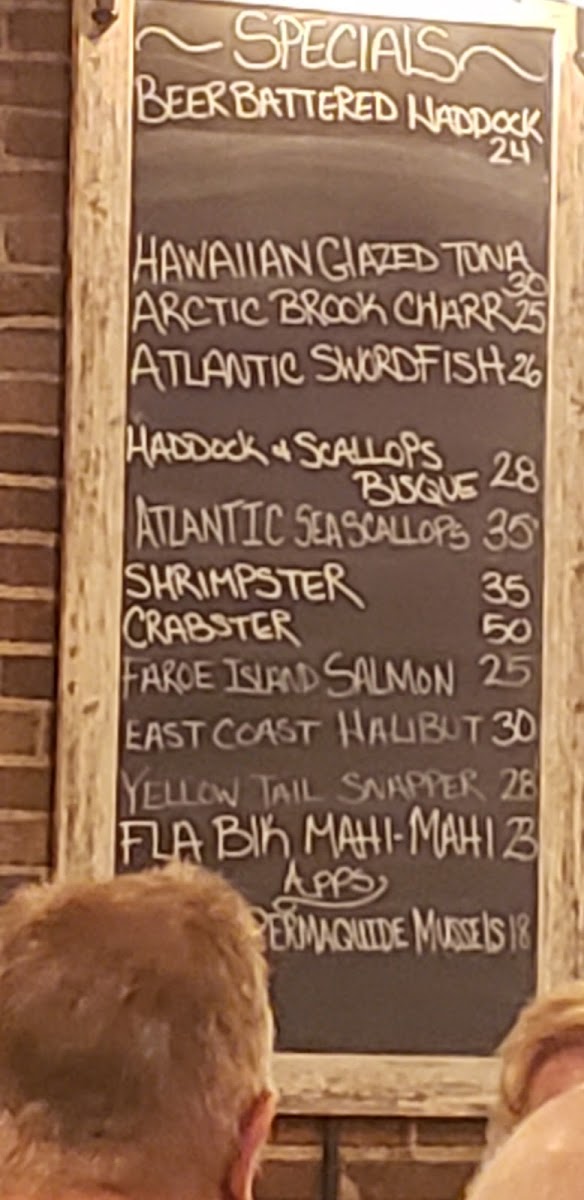 SPECIALS
BEER BATTERED HADDOCK
24
HAWAIIAN GLAZED TUNA
30
ARCTIC BROOK CHARR 25
ATLANTIC SWORDFISH 26
HADDOCK & SCALLOPS
BISQUE 28
ATLANTIC SEA SCALLOPS 35
SHRIMPSTER 35
CRABSTER 50
FAROE ISLAND SALMON 25
EAST COAST HALIBUT 30
YELLOW TAIL SNAPPER 28
FLA BlK MAHI-MAHI 23
APPS
PERMAQUIDE MUSSELS 18